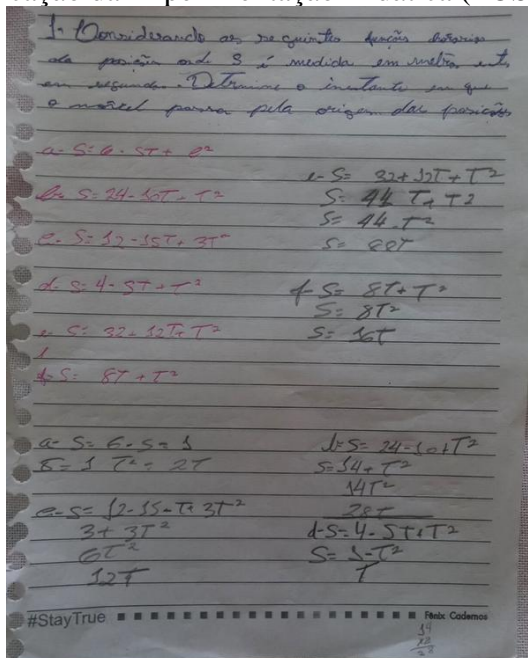 1- Considerando as seguintes função horária
da posição onde S é medida em metro e t
em segundo. Determine o instante em que
o móvel passa pela origem das posições
a- S= 6 - 5T + t²
b- S= 24 - 10T - T²
c- S= 12 - 15T + 3T²
d- S= 4 - 5T + T²
e- S= 32 + 12T + T²
f- S= 8T + T²
e- S= 32 + 12T + T²
S= 44 T + T2
S= 44 - T²
S= 88T
f- S= 8T + T²
S= 8T²
S= 16T
a- S= 6 - 5 = 1
S= 1 T² = 2T
c- S= 12 - 15 - T + 3T²
3 + 3T²
6T²
12T
b- S= 24 - 10 + T²
S= 14 + T²
14T²
28T
d- S= 4 - 5T + T²
S= 1 - T²
T
#StayTrue
Fenix Cadernos